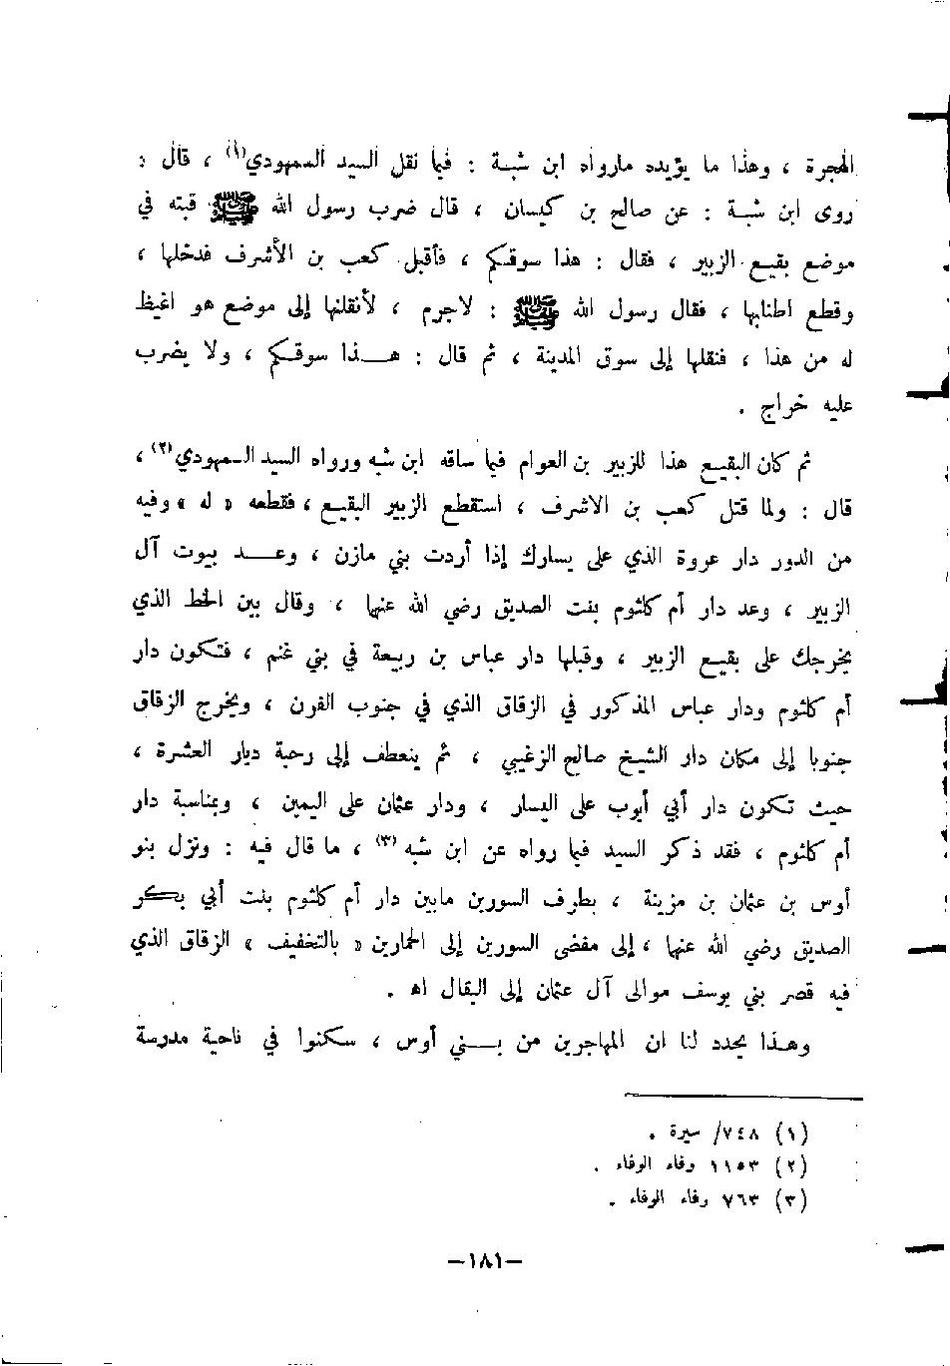 الهجرة ، وهذا ما يؤيده مارواه ابن شبة : فيما نقل السيد السمهودي(١) ، قال :
روى ابن شبة : عن صالح بن كيسان ، قال ضرب رسول الله ﷺ قبته في
موضع بقيع الزبير ، فقال : هذا سوقكم ، فأقبل كعب بن الأشرف فدخلها ،
وقطع اطنابها ، فقال رسول الله ﷺ : لاجرم ، لأنقلنها إلى موضع هو اغيظ
له من هذا ، فنقلها إلى سوق المدينة ، ثم قال : هذا سوقكم ، ولا يضرب
عليه خراج .
ثم كان البقيع هذا للزبير بن العوام فيما ساقه ابن شبه ورواه السيد السمهودي(٢) ،
قال : ولما قتل كعب بن الاشرف ، استقطع الزبير البقيع ، فقطعه « له » وفيه
من الدور دار عروة الذي على يسارك إذا أردت بني مازن ، وعد بيوت آل
الزبير ، وعد دار أم كلثوم بنت الصديق رضي الله عنها ، وقال بين الخط الذي
يخرجك على بقيع الزبير ، وقبلها دار عباس بن ربيعة في بني غنم ، فتكون دار
أم كلثوم ودار عباس المذكور في الزقاق الذي في جنوب الفرن ، ويخرج الزقاق
جنوبا إلى مكان دار الشيخ صالح الزغيبي ، ثم ينعطف إلى رحبة ديار العشرة ،
حيث تكون دار أبي أيوب على اليسار ، ودار عثمان على اليمين ، وبمناسبة دار
أم كلثوم ، فقد ذكر السيد فيما رواه عن ابن شبه(٣) ، ما قال فيه : ونزل بنو
أوس بن عثمان بن مزينة ، بطرف السورين مابين دار أم كلثوم بنت أبي بكر
الصديق رضي الله عنها ، إلى مفضى السورين إلى الحمارين « بالتخفيف » الزقاق الذي
فيه قصر بني يوسف موالى آل عثمان إلى البقال اه .
وهذا يحدد لنا ان المهاجرين من بني أوس ، سكنوا في ناحية مدرسة
(١) ٧٤٨/ سيرة .
(٢) ١١٥٣ وفاء الوفاء .
(٣) ٧٦٣ وفاء الوفاء .
–١٨١–